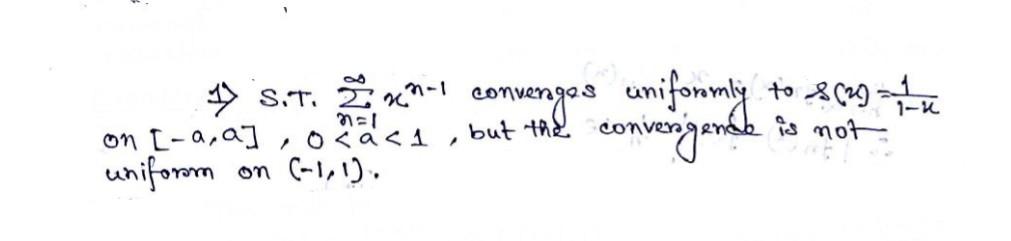 1> S.T. ∞ Σ n=1 x^{n-1} converges uniformly to s(x) = 1/(1-x)
on [-a,a] , 0<a<1 , but the convergence is not
uniform on (-1,1).